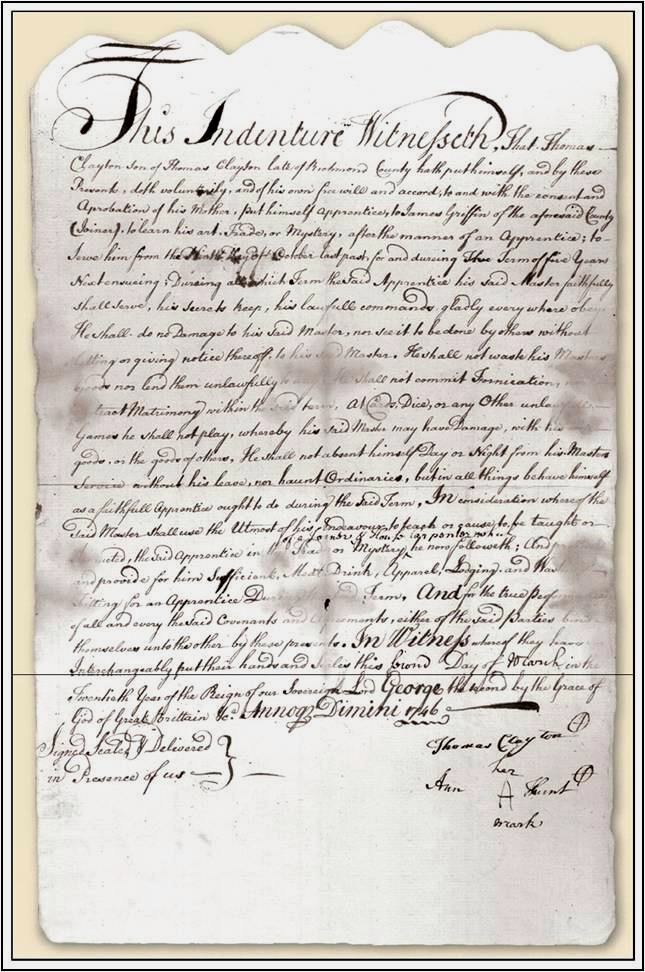 This Indenture Witnesseth, That Thomas
Clayton son of Thomas Clayton late of Richmond County hath put himself, and by these
Presents, doth voluntarily, and of his own free will and accord, to and with the consent and
Aprobation of his Mother, put himself Apprentice, to James Griffin of the aforesaid County
(Joiner), to learn his art, Trade, or Mystery, after the manner of an Apprentice; to
Serve him from the Day of October last past, for and dureing Term of five Years
Next ensueing; Dureing all which Term the Said Apprentice his said Master faithfully
shall serve, his secrets keep, his lawfull commands, gladly every where obey.
He shall do no Damage to his said Master, nor see it to be done by others without
letting or giving notice thereoff, to his said Master. He shall not waste his Masters
goods nor lend them unlawfully to any. He shall not commit Fornication,
Contract Matrimony within the said term, At Cards, Dice, or any Other unlawfull
Games he shall not play, whereby his Said Master may have Damage, with his
goods, or the goods of others, He shall not absent himself Day or Night from his Masters
Service without his leave, nor haunt Ordinaries, but in all things behave himself
as a faithfull Apprentice ought to do during the Said Term, In consideration whereof the
Said Master shall use the Utmost of his Endeavour to teach or cause to be taught or
of a Joiner & House Carpenter
the Said Apprentice in Trade or Mystery he now followeth; And
and provide for him Sufficient, Meat, Drink, Apparel, Lodging and
fitting for an Apprentice During Term, And for the true
of all and every the Said Covenants and Agreements, either of the Said Parties
themselves unto the other by these presents. In Witness whereof they have
Interchangeably put their hands and Seales this Day of March in the
Twentieth Year of the Reign of our Sovereign Lord George the second by the Grace of
God of Great Brittain &c. Annoq Dimini 1746
Signed Sealed & Delivered
in Presence of us
Thomas Clayton
her
Ann A Hunt
mark